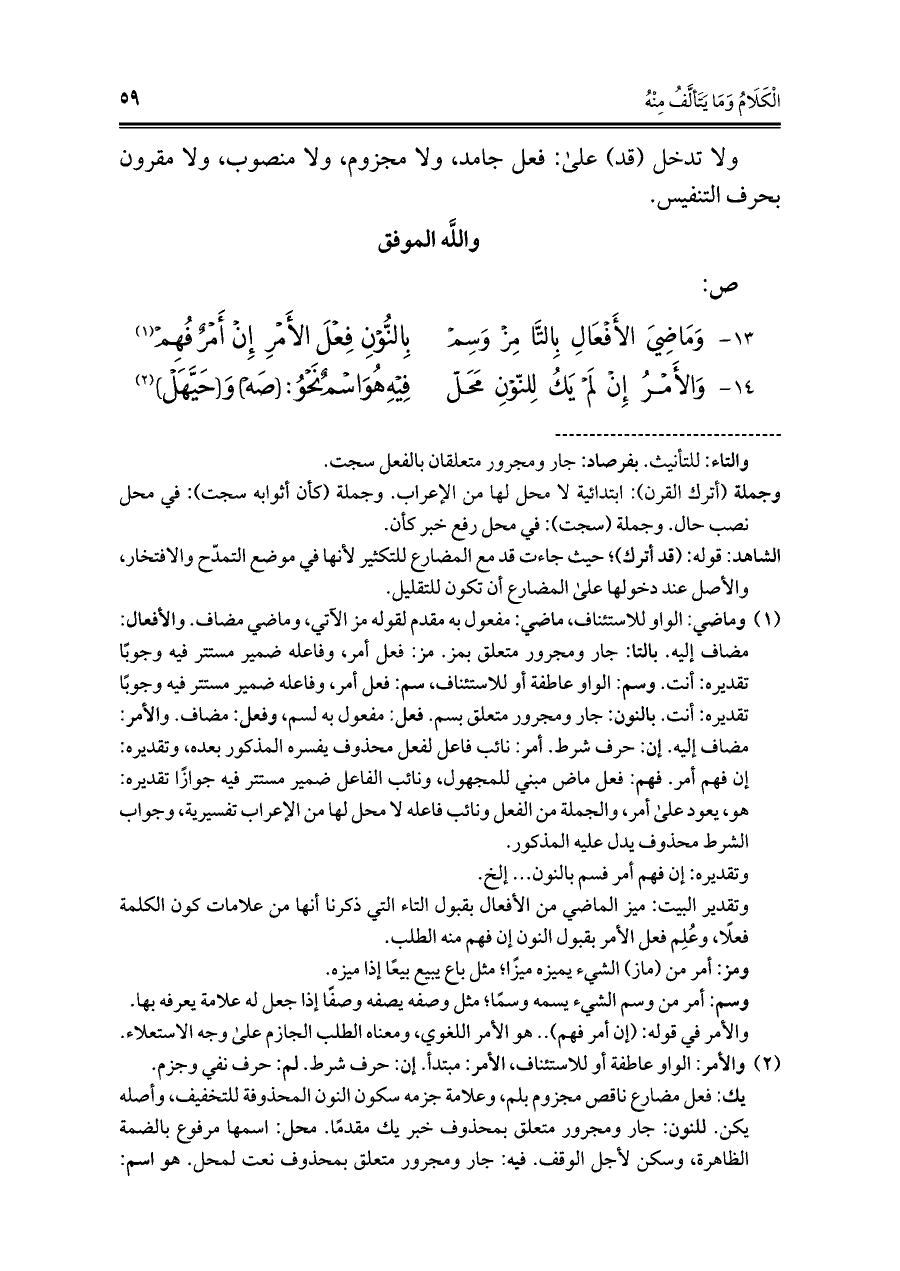 الْكَلَامُ وَمَا يَتَأَلَّفُ مِنْهُ ٥٩
ولا تدخل (قد) علىٰ: فعل جامد، ولا مجزوم، ولا منصوب، ولا مقرون
بحرف التنفيس.
واللَّه الموفق
ص:
١٣- وَمَاضِيَ الأَفْعَالِ بِالتَّا مِزْ وَسِمْ بِالنُّوْنِ فِعْلَ الأَمْرِ إِنْ أَمْرٌ فُهِمْ(١)
١٤- وَالأَمْـرُ إِنْ لَمْ يَكُ لِلنّوْنِ مَحَـلّ فِيْهِ هُوَ اسْمٌ نَحْوُ: (صَهْ) وَ(حَيَّهَلْ)(٢)
والتاء: للتأنيث. بفرصاد: جار ومجرور متعلقان بالفعل سجت.
وجملة (أترك القرن): ابتدائية لا محل لها من الإعراب. وجملة (كأن أثوابه سجت): في محل
نصب حال. وجملة (سجت): في محل رفع خبر كأن.
الشاهد: قوله: (قد أترك)؛ حيث جاءت قد مع المضارع للتكثير لأنها في موضع التمدّح والافتخار،
والأصل عند دخولها علىٰ المضارع أن تكون للتقليل.
(١) وماضي: الواو للاستئناف، ماضي: مفعول به مقدم لقوله مز الآتي، وماضي مضاف. والأفعال:
مضاف إليه. بالتا: جار ومجرور متعلق بمز. مز: فعل أمر، وفاعله ضمير مستتر فيه وجوبًا
تقديره: أنت. وسم: الواو عاطفة أو للاستئناف، سم: فعل أمر، وفاعله ضمير مستتر فيه وجوبًا
تقديره: أنت. بالنون: جار ومجرور متعلق بسم. فعل: مفعول به لسم، وفعل: مضاف. والأمر:
مضاف إليه. إن: حرف شرط. أمر: نائب فاعل لفعل محذوف يفسره المذكور بعده، وتقديره:
إن فهم أمر. فهم: فعل ماض مبني للمجهول، ونائب الفاعل ضمير مستتر فيه جوازًا تقديره:
هو، يعود علىٰ أمر، والجملة من الفعل ونائب فاعله لا محل لها من الإعراب تفسيرية، وجواب
الشرط محذوف يدل عليه المذكور.
وتقديره: إن فهم أمر فسم بالنون... إلخ.
وتقدير البيت: ميز الماضي من الأفعال بقبول التاء التي ذكرنا أنها من علامات كون الكلمة
فعلًا، وعُلِم فعل الأمر بقبول النون إن فهم منه الطلب.
ومز: أمر من (ماز) الشيء يميزه ميزًا؛ مثل باع يبيع بيعًا إذا ميزه.
وسم: أمر من وسم الشيء يسمه وسمًا؛ مثل وصفه يصفه وصفًا إذا جعل له علامة يعرفه بها.
والأمر في قوله: (إن أمر فهم).. هو الأمر اللغوي، ومعناه الطلب الجازم علىٰ وجه الاستعلاء.
(٢) والأمر: الواو عاطفة أو للاستئناف، الأمر: مبتدأ. إن: حرف شرط. لم: حرف نفي وجزم.
يك: فعل مضارع ناقص مجزوم بلم، وعلامة جزمه سكون النون المحذوفة للتخفيف، وأصله
يكن. للنون: جار ومجرور متعلق بمحذوف خبر يك مقدمًا. محل: اسمها مرفوع بالضمة
الظاهرة، وسكن لأجل الوقف. فيه: جار ومجرور متعلق بمحذوف نعت لمحل. هو اسم: